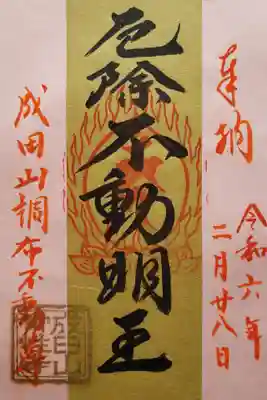 奉納
令和六年
二月廿八日
厄除不動明王
成田山調布不動尊